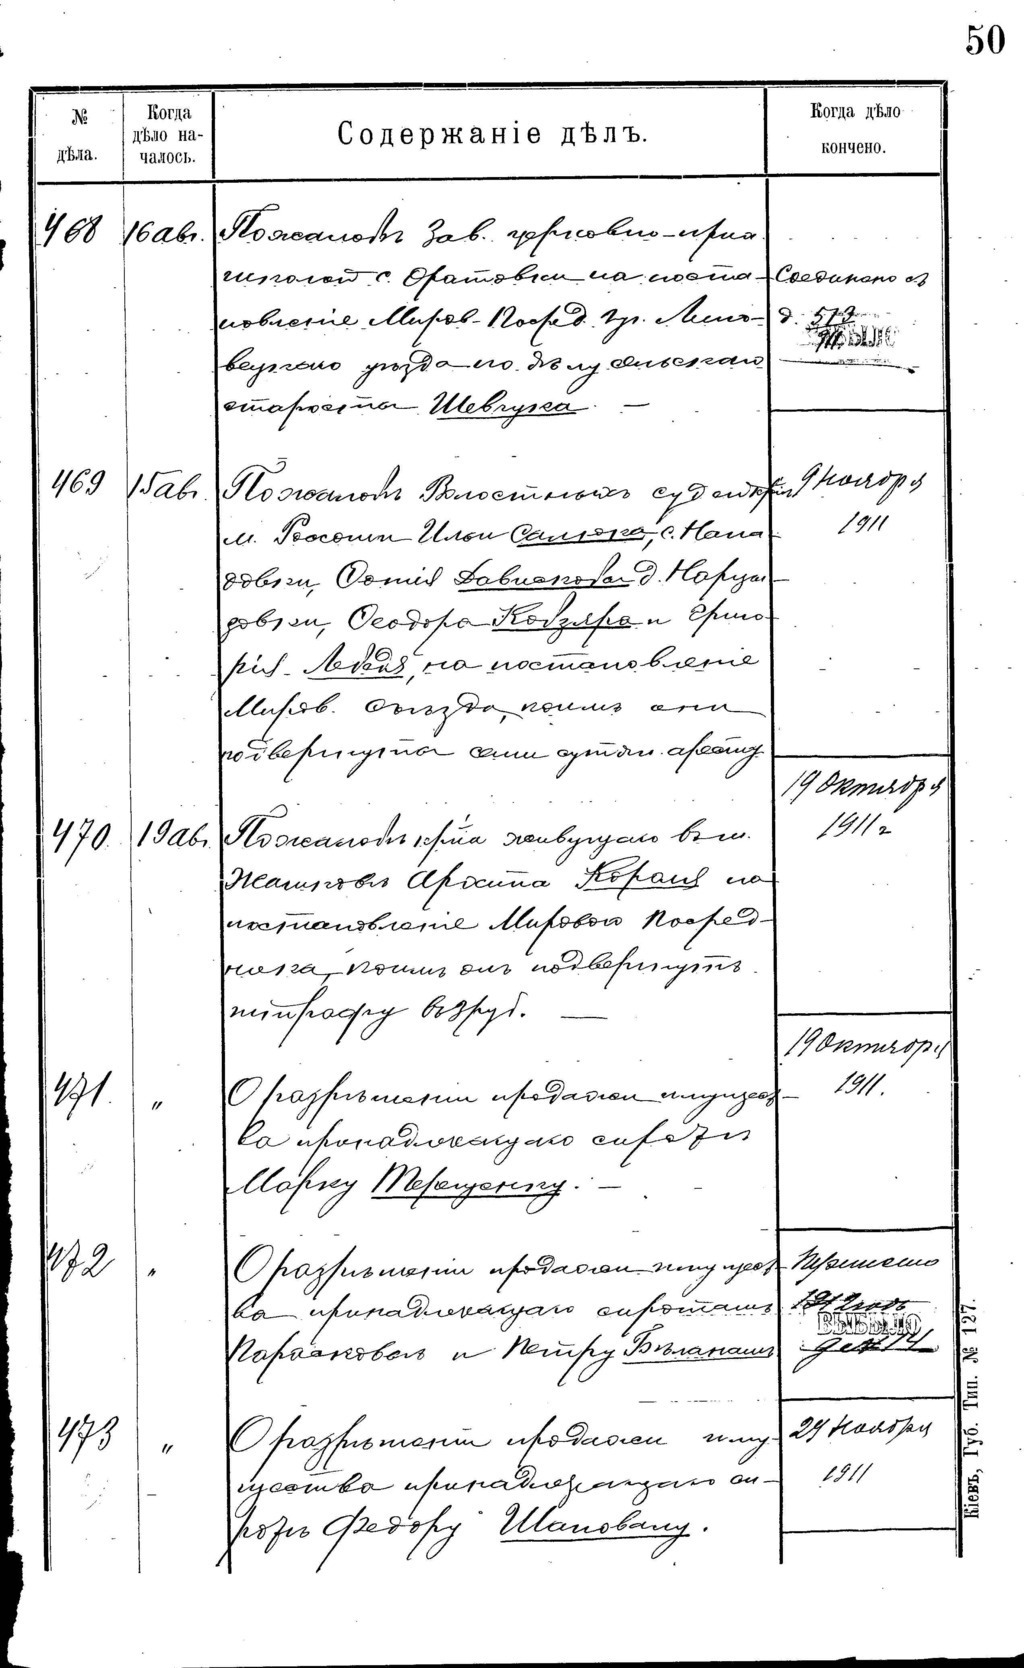 50
№ дѣла.
Когда дѣло началось.
Содержаніе дѣлъ.
Когда дѣло кончено.
468
16 авг.
По жалобѣ Зав. церковно-прих.
школой с. Оратовки на поста-
новленіе Миров. Посред. уч. Липо-
вецкаго уѣзда по дѣлу сельскаго
старосты Шевчука. —
Соединено съ
д. 513
469
15 авг.
По жалобѣ Волостныхъ судей
м. Россоши Ильи с. Напа-
довки, д. Нарца-
зовки, Феодора Кобзяра и Григо-
рія Лебедя, на постановленіе
Миров. Съѣзда, коимъ они
подвергнуты семи суточн. аресту
9 Ноября
1911
470.
19 авг.
По жалобѣ кр-на живущаго въ м.
Жашковѣ Архипа Короля на
постановленіе Мирового Посред-
ника, коимъ онъ подвергнутъ
штрафу въ 3 руб. —
19 Октября
1911 г
471.
"
О разрѣшеніи продажи имущест-
ва принадлежащаго сиротѣ
Марку Терещенку. —
19 Октября
1911.
472
"
О разрѣшеніи продажи имущест-
ва принадлежащаго сиротамъ
и Петру Бѣланамъ
Перенесено
1912 годъ
ВЫБЫЛО
473
"
О разрѣшеніи продажи иму-
щества принадлежащаго си-
ротѣ Федору Шаповалу.
24 Ноября
1911
Кіевъ, Губ. Тип. № 127.